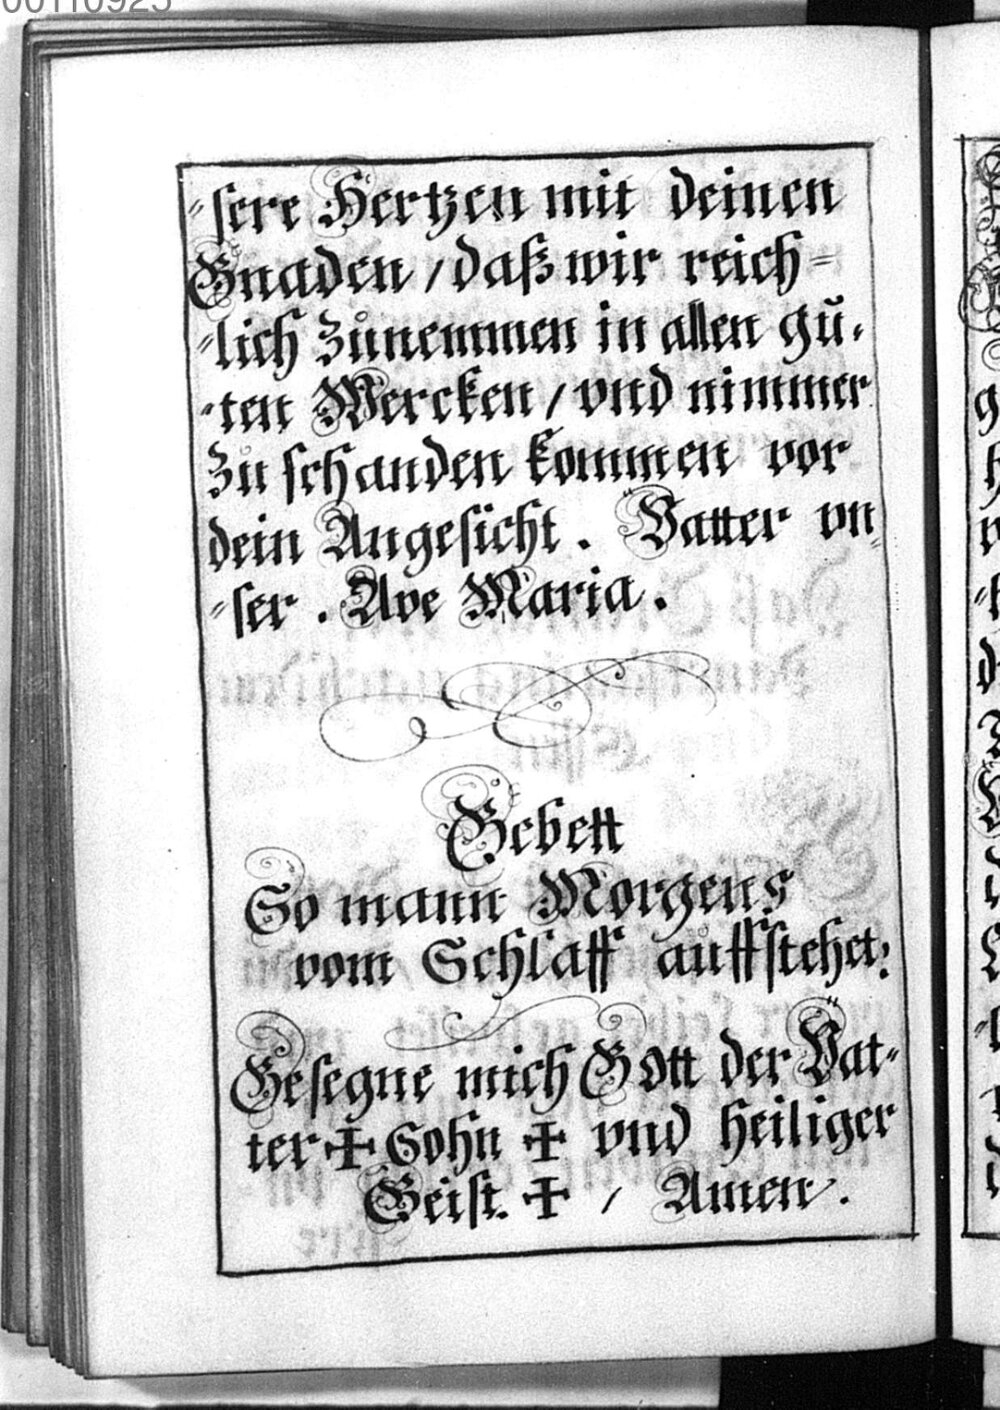 00110925
⸗sere Hertzen mit deinen
Gnaden / daß wir reich⸗
⸗lich zunemmen in allen gu⸗
⸗ten Wercken / vnd nimmer
zu schanden kommen vor
dein Angesicht. Vatter vn⸗
⸗ser. Ave Maria.
Gebett
So mann Morgens
vom Schlaff auffstehet:
Gesegne mich Gott der Vat⸗
ter ✠ Sohn ✠ vnd heiliger
Geist. ✠ / Amen.